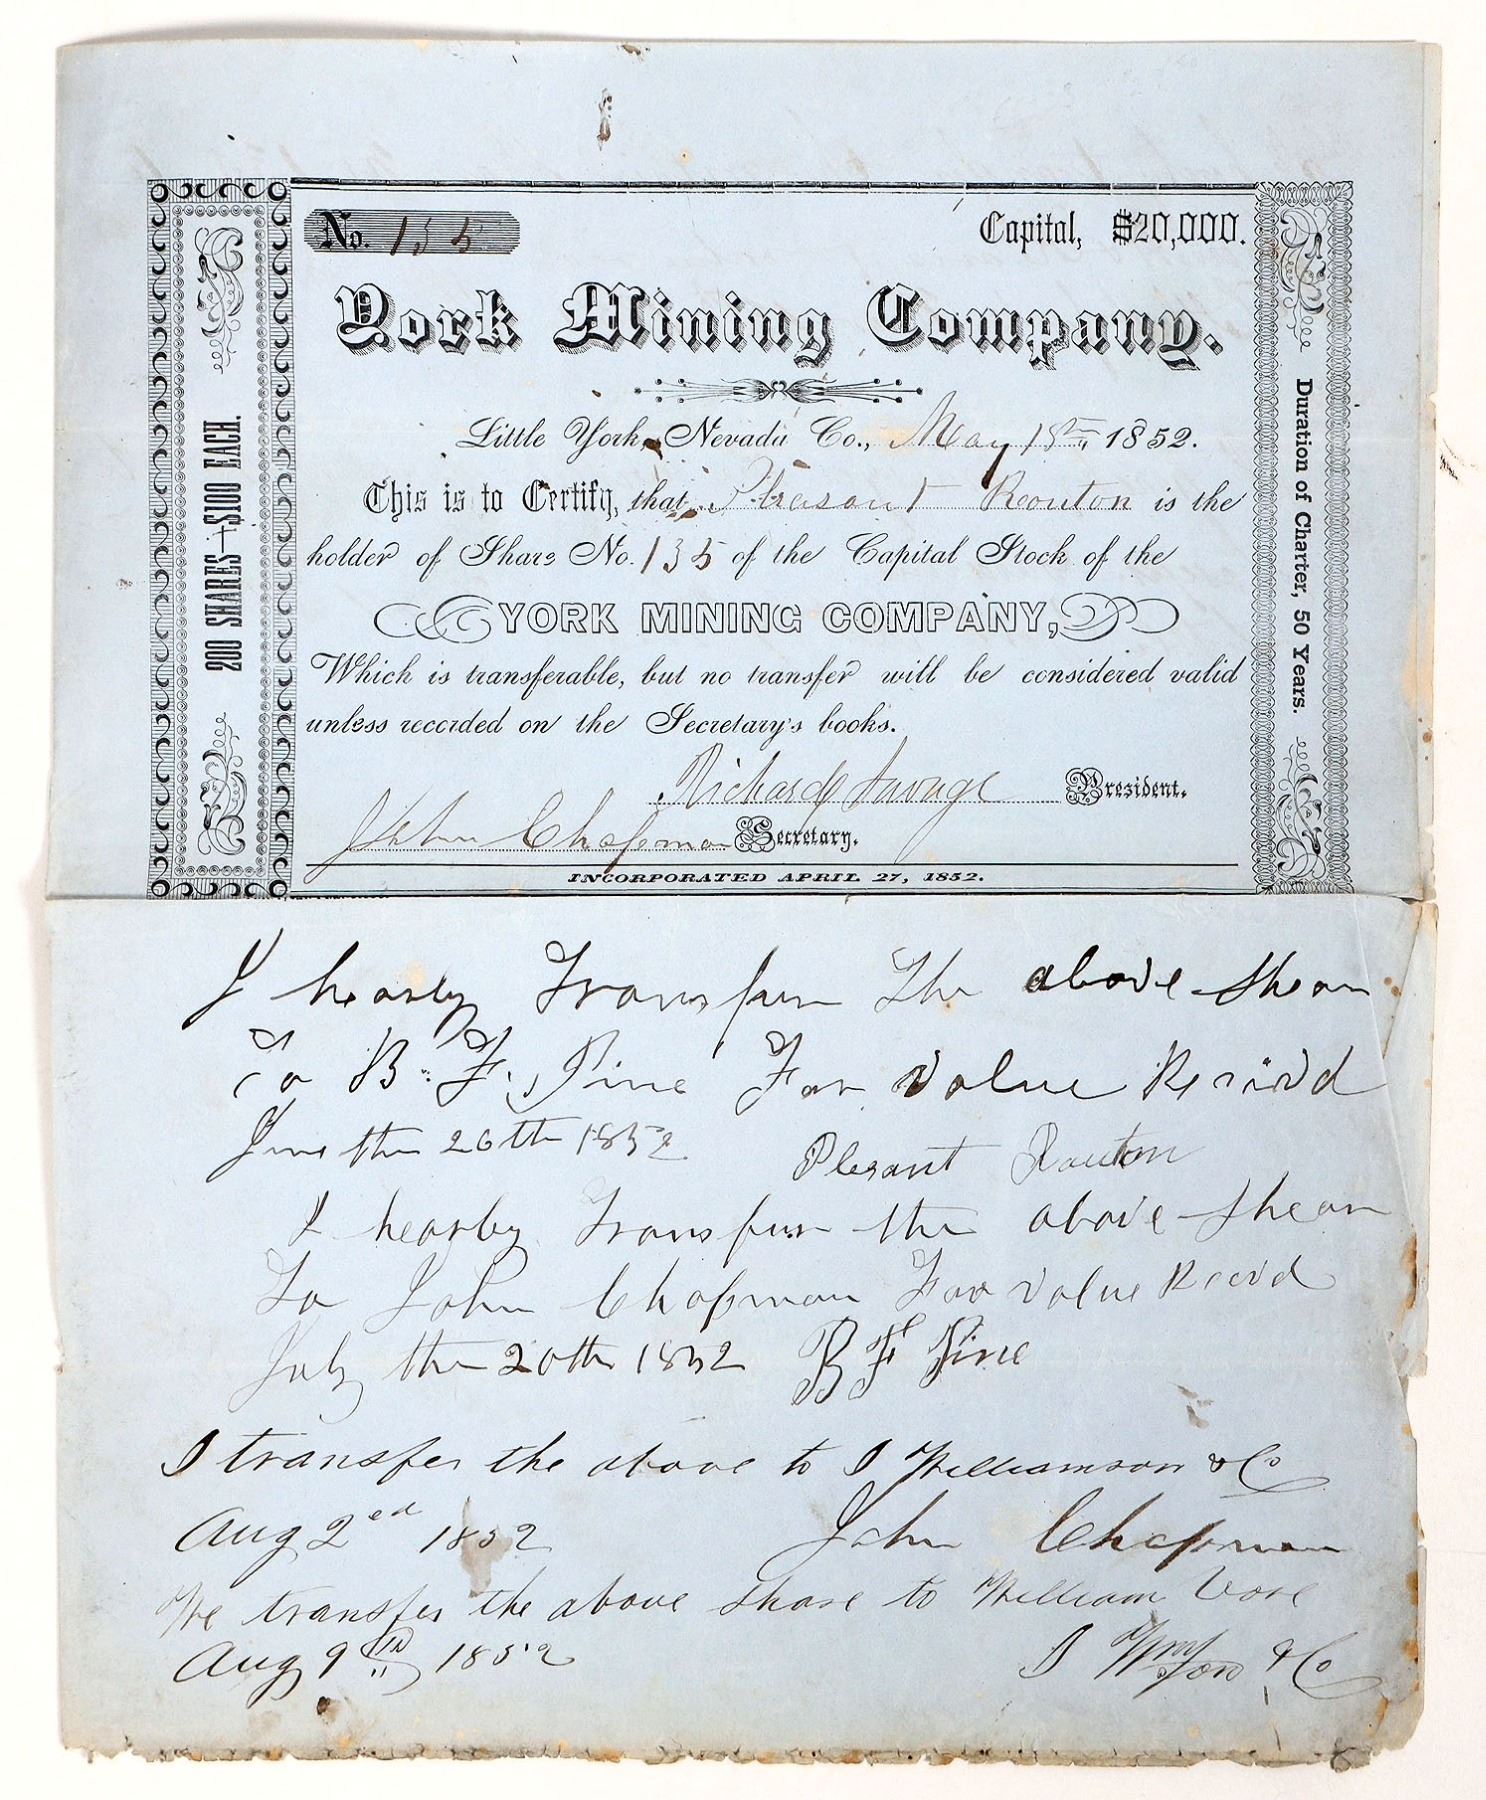 No. 135
Capital, $20,000.
York Mining Company.
Little York, Nevada Co., May 18th 1852.
This is to Certify, that Pleasant Routon is the
holder of Share No. 135 of the Capital Stock of the
YORK MINING COMPANY,
Which is transferable, but no transfer will be considered valid
unless recorded on the Secretary's books.
Richard Savage President.
John Chapman Secretary.
INCORPORATED APRIL 27, 1852.
200 SHARES—$100 EACH.
Duration of Charter, 50 Years.
I hearby Transfur The above Shear
To B. F. Pine For Value Reciv'd
June the 26th 1852 Plesant Routon
I hearby Transfur the above Shear
To John Chapman For Value Reciv'd
July the 20th 1852 B F Pine
I transfer the above to J Williamson & Co
Aug 2ed 1852 John Chapman
We transfer the above share to William Vore
Aug 9th 1852 J Wmson & Co